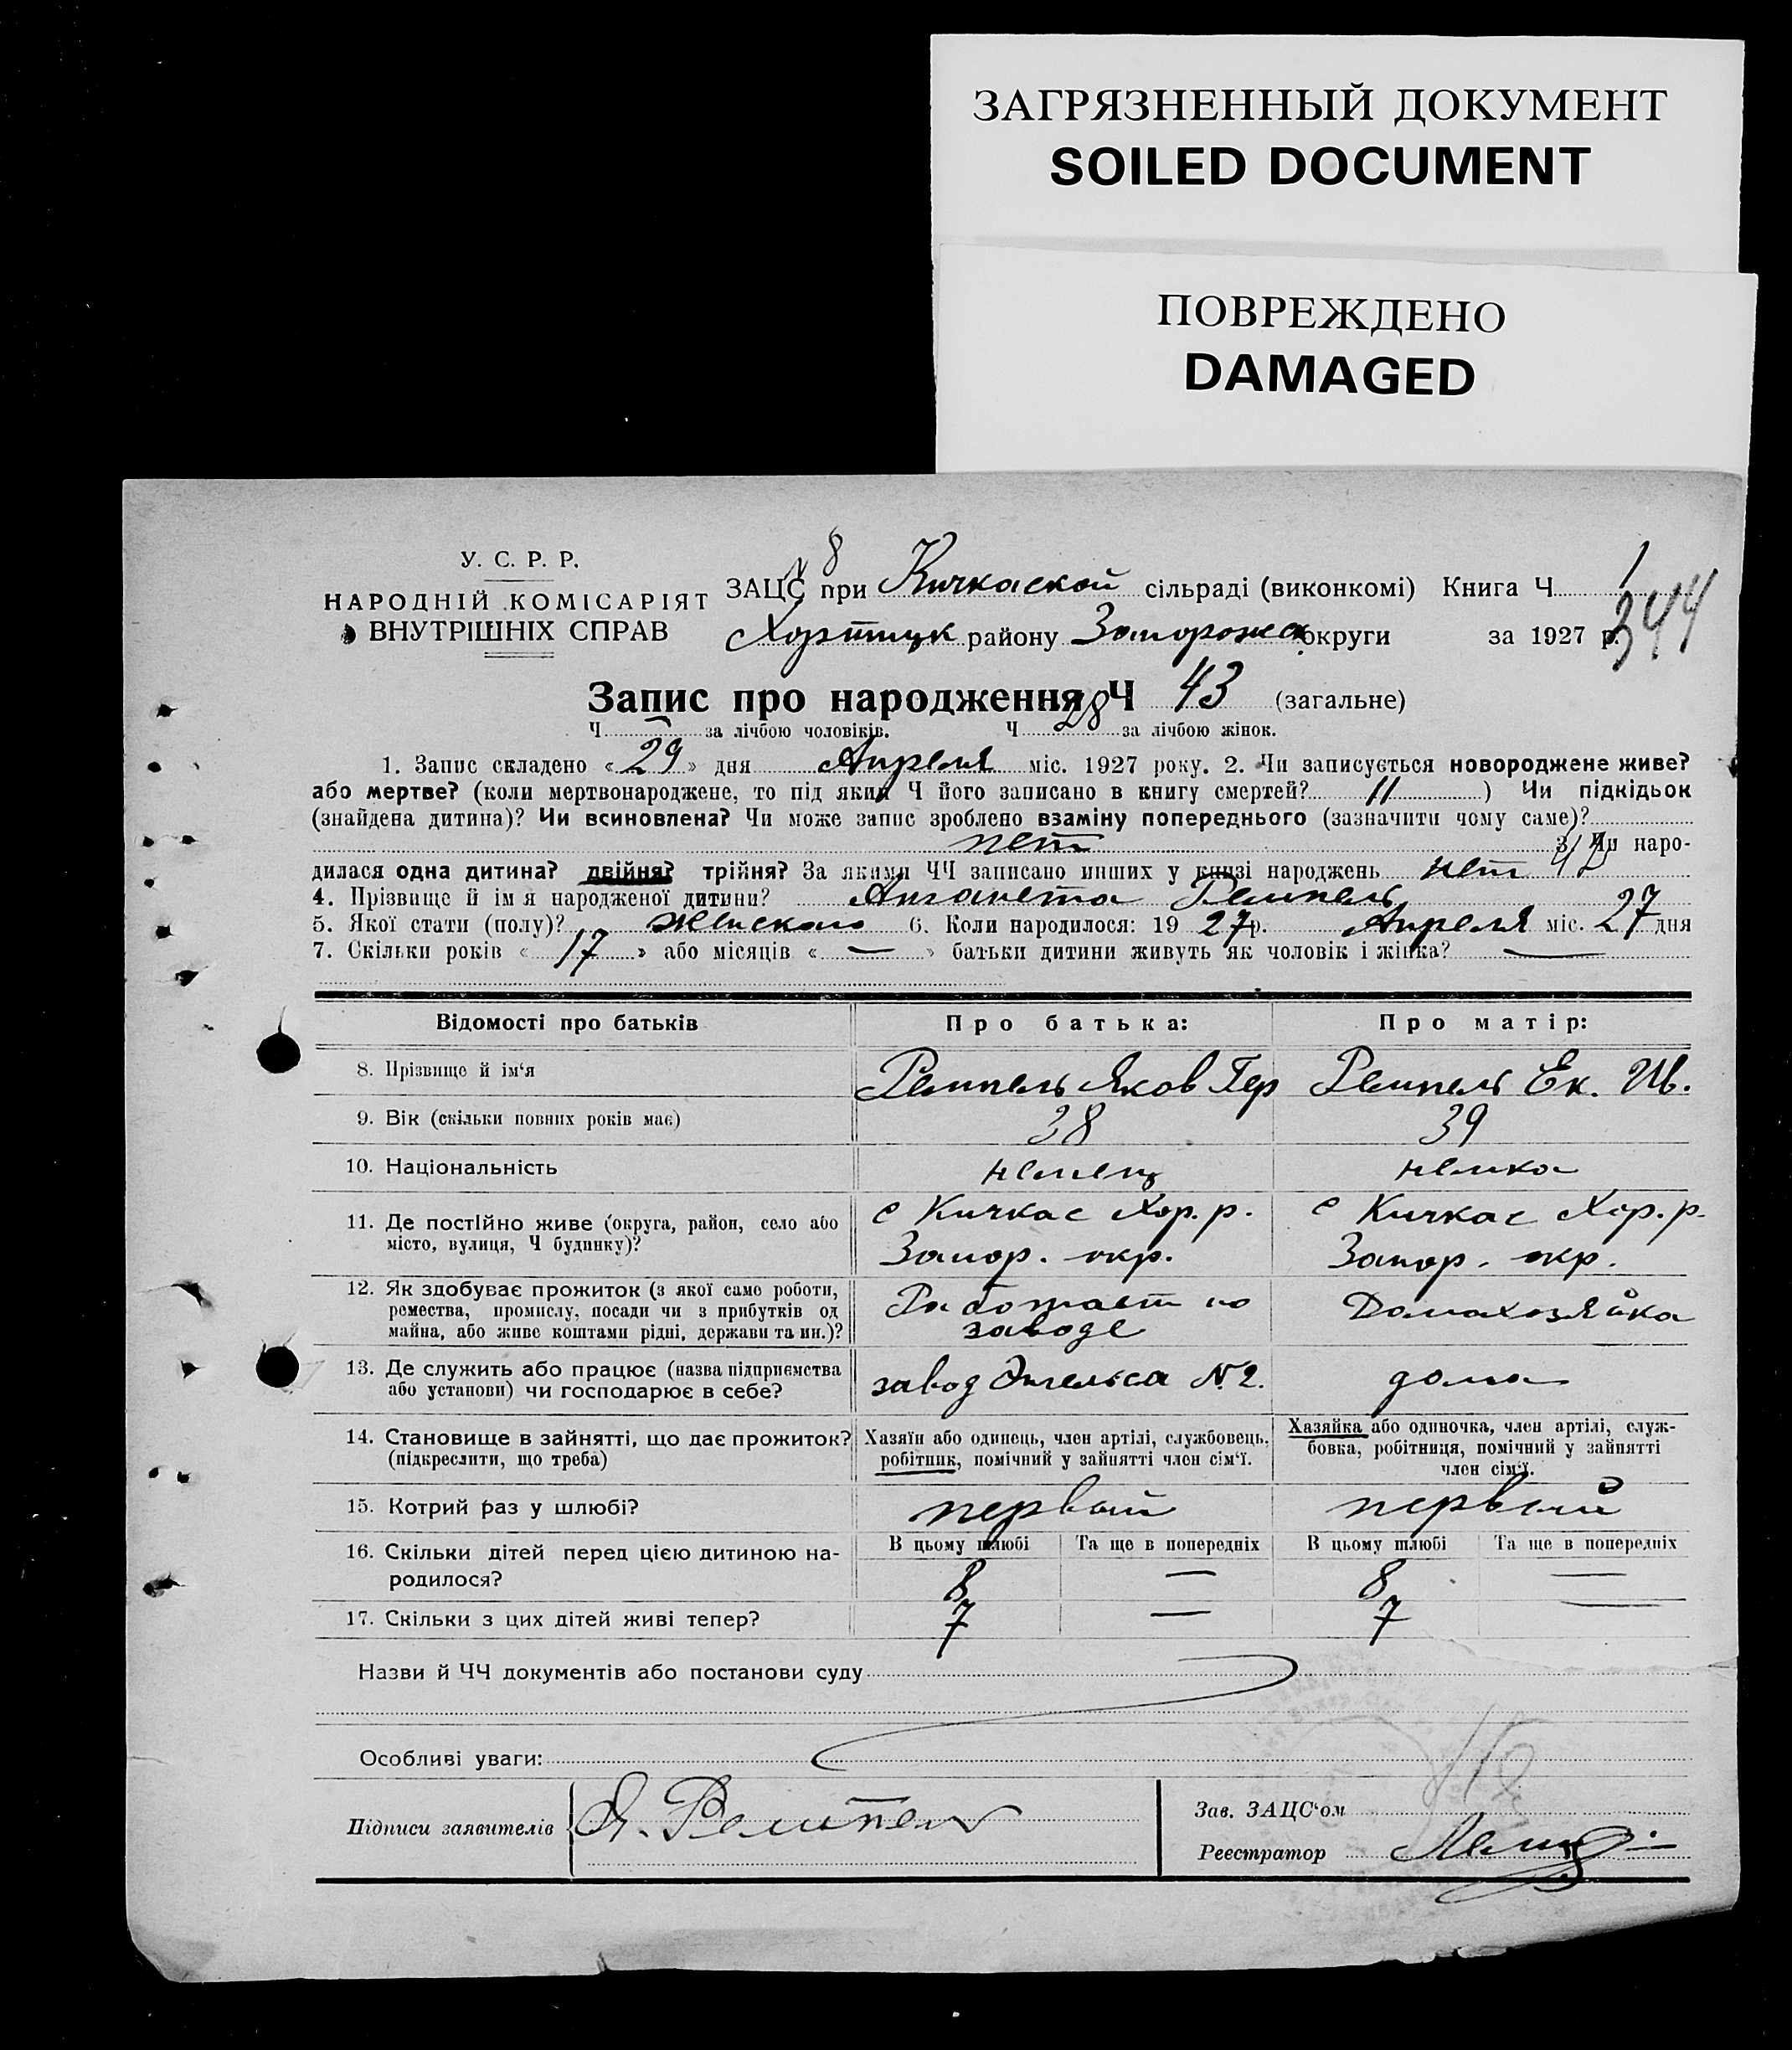 ЗАГРЯЗНЕННЫЙ ДОКУМЕНТ
SOILED DOCUMENT
ПОВРЕЖДЕНО
DAMAGED
У. С. Р. Р.
НАРОДНІЙ КОМІСАРІЯТ
ВНУТРІШНІХ СПРАВ
8
ЗАЦС при Кичкаской сільраді (виконкомі) Книга Ч 1
Хортицк району Запорожск округи за 1927 р.
344
Запис про народження Ч 43 (загальне)
Ч — за лічбою чоловіків. Ч 28 за лічбою жінок.
1. Запис складено « 29 » дня Апреля міс. 1927 року. 2. Чи записується новороджене живе?
або мертве? (коли мертвонароджене, то під яким Ч його записано в книгу смертей? // ) Чи підкідьок
(знайдена дитина)? Чи всиновлена? Чи може запис зроблено взаміну попереднього (зазначити чому саме)?
нет 3. Чи наро-
дилася одна дитина? двійня? трійня? За якими ЧЧ записано инших у книзі народжень нет 42
4. Прізвище й ім'я народженої дитини? Анганета Ремпель
5. Якої стати (полу)? женскаго 6. Коли народилося: 19 27 р. Апреля міс. 27 дня
7. Скільки років « 17 » або місяців « — » батьки дитини живуть як чоловік і жінка? —
Відомості про батьків Про батька: Про матір:
8. Прізвище й ім'я Ремпель Яков Гер Ремпель Ек. Ив.
9. Вік (скільки повних років має) 38 39
10. Національність немец немка
11. Де постійно живе (округа, район, село або с Кичкас Хор. р. с Кичкас Хор. р.
місто, вулиця, Ч будинку)? Запор. окр. Запор. окр.
12. Як здобуває прожиток (з якої само роботи, Работает на Домахозяйка
ремества, промислу, посади чи з прибутків од заводе
майна, або живе коштами рідні, держави та ин.)?
13. Де служить або працює (назва підприємства завод Энгельса №2. дома
або установи) чи господарює в себе?
14. Становище в зайнятті, що дає прожиток? Хазяїн або одинець, член артілі, службовець, Хазяйка або одиночка, член артілі, служ-
(підкреслити, що треба) робітник, помічний у зайнятті член сім'ї. бовка, робітниця, помічний у зайнятті
член сім'ї.
15. Котрий раз у шлюбі? первый первый
16. Скільки дітей перед цією дитиною на- В цьому шлюбі Та ще в попередніх В цьому шлюбі Та ще в попередніх
родилося? 8 — 8 —
17. Скільки з цих дітей живі тепер? 7 — 7 —
Назви й ЧЧ документів або постанови суду
Особливі уваги:
Підписи заявителів Я. Ремпель
Зав. ЗАЦС'ом
Реєстратор